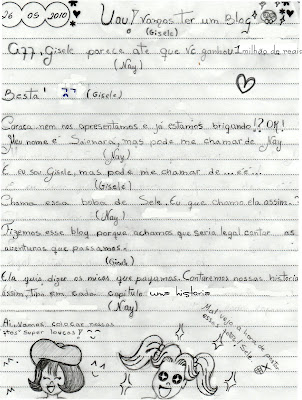 26 05 2010
Uau! Vamos Ter um Blog
(Gisele)
G77, Gisele parece até que vc ganhou 1 milhão de reais
(Nay)
Besta! (Gisele)
Caraca nem nos apresentamos e já estamos brigando!? OK!
Meu nome é, mas pode me chamar de Nay
(Nay)
E eu sou Gisele, mas pode me chamar de ... é é...
(Gisele)
Chama essa boba de Sele. Eu que chamo ela assim.
(Nay)
Fizemos esse blog porque achamos que seria legal contar as
aventuras que passamos.
(Gisele)
Ela quis dizer os micos que pagamos. Contaremos nossas história
assim, Tipo em cada capítulo uma história
(Nay)
Ai, vamos colocar nossas
fotos super loucas!
Mal vejo a hora de postar
essas fotos! Sele